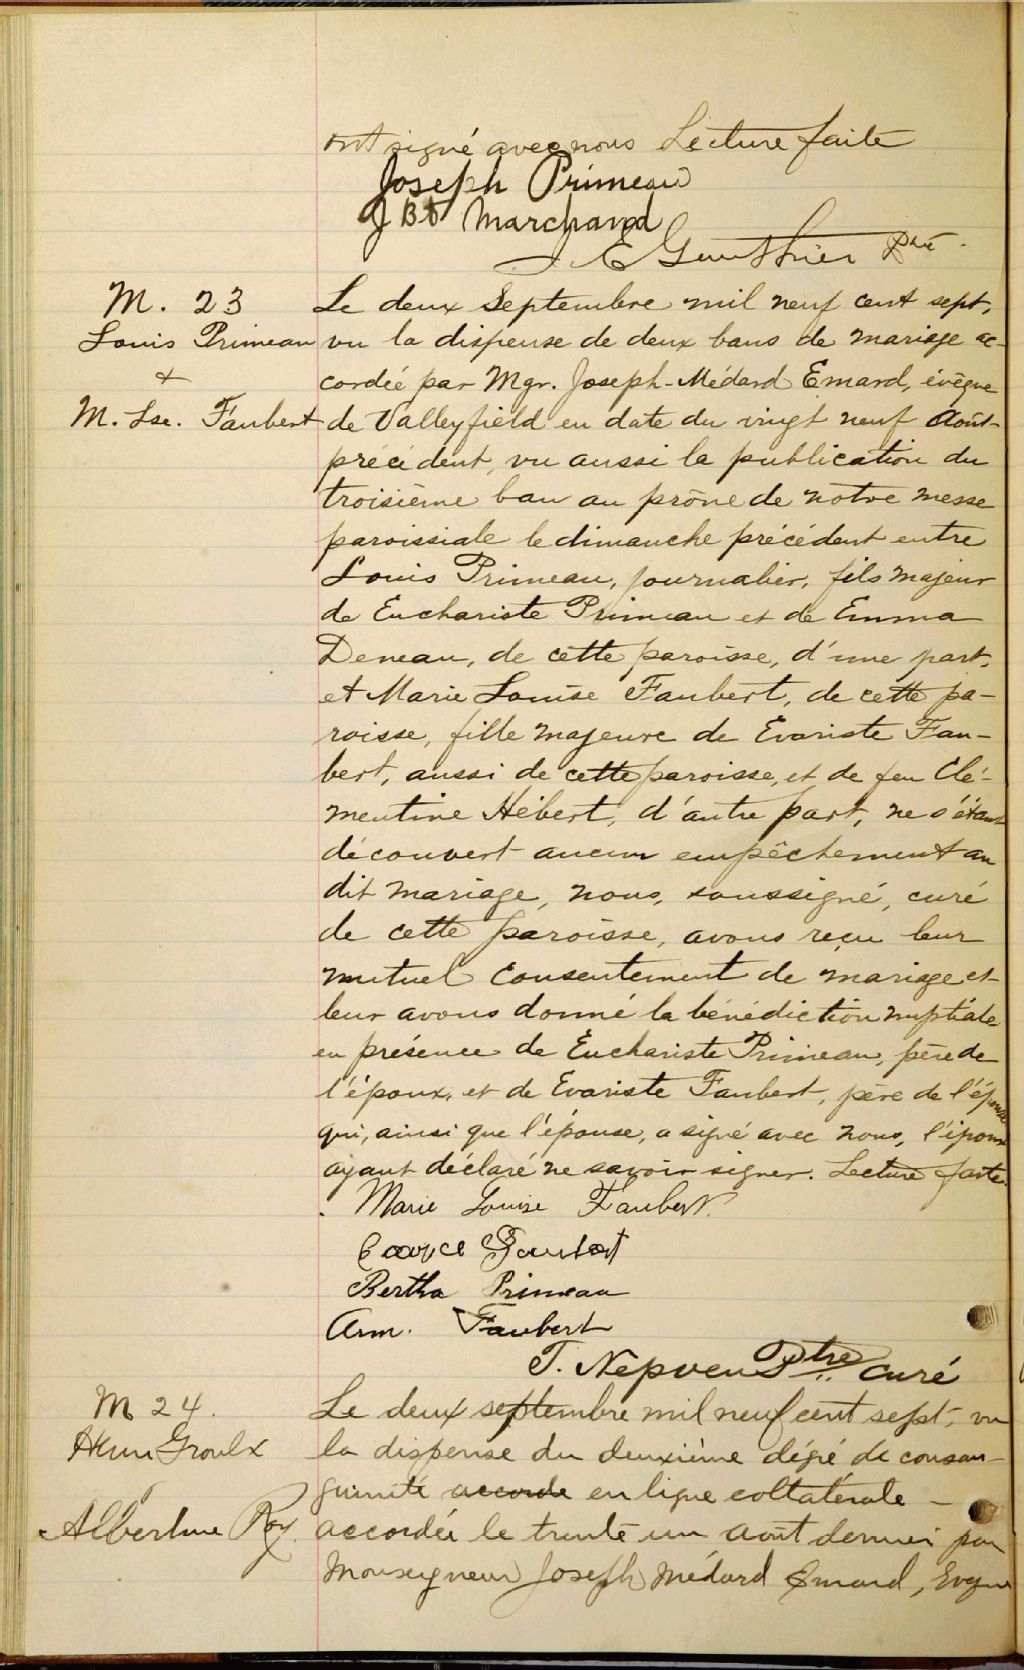 ont signé avec nous Lecture faite
Joseph Primeau
J Bte Marchand
J E Gauthier Ptre
M. 23
Louis Primeau
+
M. Lse. Faubert
Le deux Septembre mil neuf cent sept,
vu la dispense de deux bans de mariage ac-
cordée par Mgr. Joseph-Médard Emard, évêque
de Valleyfield en date du vingt neuf Août
précédent, vu aussi la publication du
troisième ban au prône de notre messe
paroissiale le dimanche précédent entre
Louis Primeau, journalier, fils majeur
de Euchariste Primeau et de Emma
Deneau, de cette paroisse, d'une part,
et Marie Louise Faubert, de cette pa-
roisse, fille majeure de Evariste Fau-
bert, aussi de cette paroisse, et de feu Clé-
mentine Hébert, d'autre part, ne s'étant
découvert aucun empêchement au
dit mariage, nous, soussigné, curé
de cette paroisse, avons reçu leur
mutuel consentement de mariage et
leur avons donné la bénédiction nuptiale
en présence de Euchariste Primeau, père de
l'époux, et de Evariste Faubert, père de l'épouse
qui, ainsi que l'épouse, a signé avec nous, l'époux
ayant déclaré ne savoir signer. Lecture faite.
Marie Louise Faubert.
Faubert
Bertha Primeau
Arm. Faubert
T. Nepveu Ptre curé
M 24.
Groulx
Albertine Roy
Le deux septembre mil neuf cent sept, vu
la dispense du deuxième dégré de consan-
guinité accorde en ligne collatérale -
accordée le trente un août dernier par
Monseigneur Joseph Médard Emard, Evêque